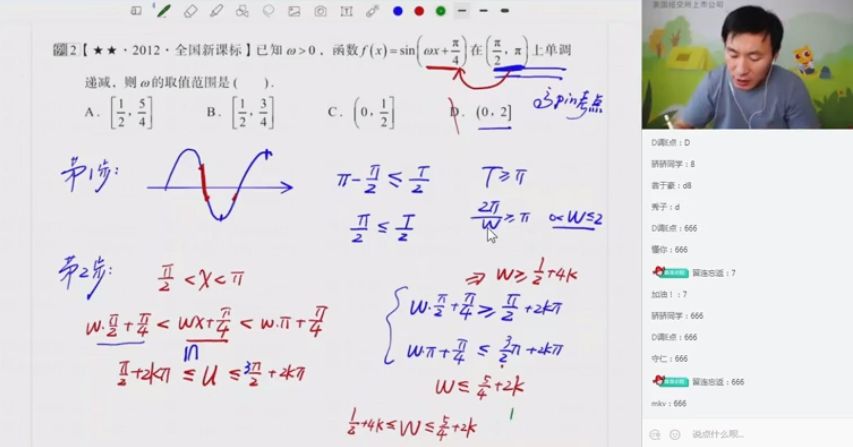 美国纽交所上市公司
例2【★★·2012·全国新课标】已知 ω>0，函数 f(x)=sin(ωx+π/4) 在 (π/2, π) 上单调
递减，则 ω 的取值范围是（ ）.
A. [1/2, 5/4] B. [1/2, 3/4] C. (0, 1/2] D. (0, 2]
考点
第1步:
π-π/2≤T/2 T≥π
π/2≤T/2 2π/W≥π 0<W≤2
第2步:
π/2<x<π
W·π/2+π/4<Wx+π/4<W·π+π/4
π/2+2kπ≤u≤3π/2+2kπ
⇒ W≥1/2+4k
W·π/2+π/4≥π/2+2kπ
W·π+π/4≤3/2π+2kπ
W≤5/4+2k
1/2+4k≤W≤5/4+2k
D调E点：D
骄骄同学：8
首于豪：d8
秀子：d
D调E点：666
懂你：666
留连忘返：7
加油！：7
骄骄同学：666
D调E点：666
守仁：666
留连忘返：666
mkv：666
说点什么呢...